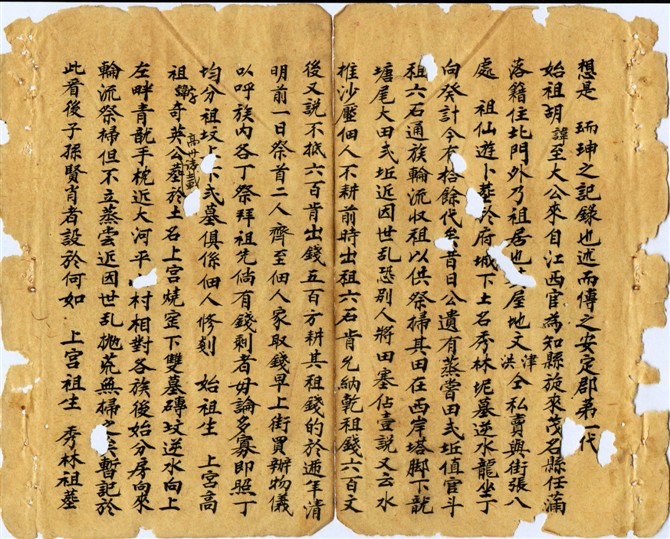 想是 珊珅之記錄也述而傳之安定郡第一代
始祖胡諱至大公來自江西官為知縣旋來茂名縣任滿
落籍住北門外乃祖居也其屋地文洪津仝私賣與街張八
處 祖仙遊卜塟於府城下土名秀林坭墓逆水龍坐丁
向癸計今有拾餘代矣昔日公遺有蒸嘗田弍坵值官斗
租六石通族輪流收租以供祭掃其田在西岸塔脚下就
塘尾大田弍坵近因世乱恐别人將田塞佔壹説又云水
推沙壓佃人不耕前時出租六石肯允納乾租錢六百文
後又説不抵六百肯出錢五百方耕其租錢的於遞年清
明前一日祭首二人齊至佃人家取錢早上街買辦物儀
以呼族內各丁祭拜祖先倘有錢剩者毋論多寡即照丁
均分祖坟上下弍墓俱係佃人修剗 始祖生 上宮高
祖諱字奇英公塟於土名上宮燒窑下雙墓磚坟逆水向上
高州 載
左畔青龍手枕近大河平 村相對各族後始分房向來
輪流祭掃但不立蒸嘗近因世乱拋荒無掃之矣暫記於
此看後子孫賢肖者設於何如 上宮祖生 秀林祖塟